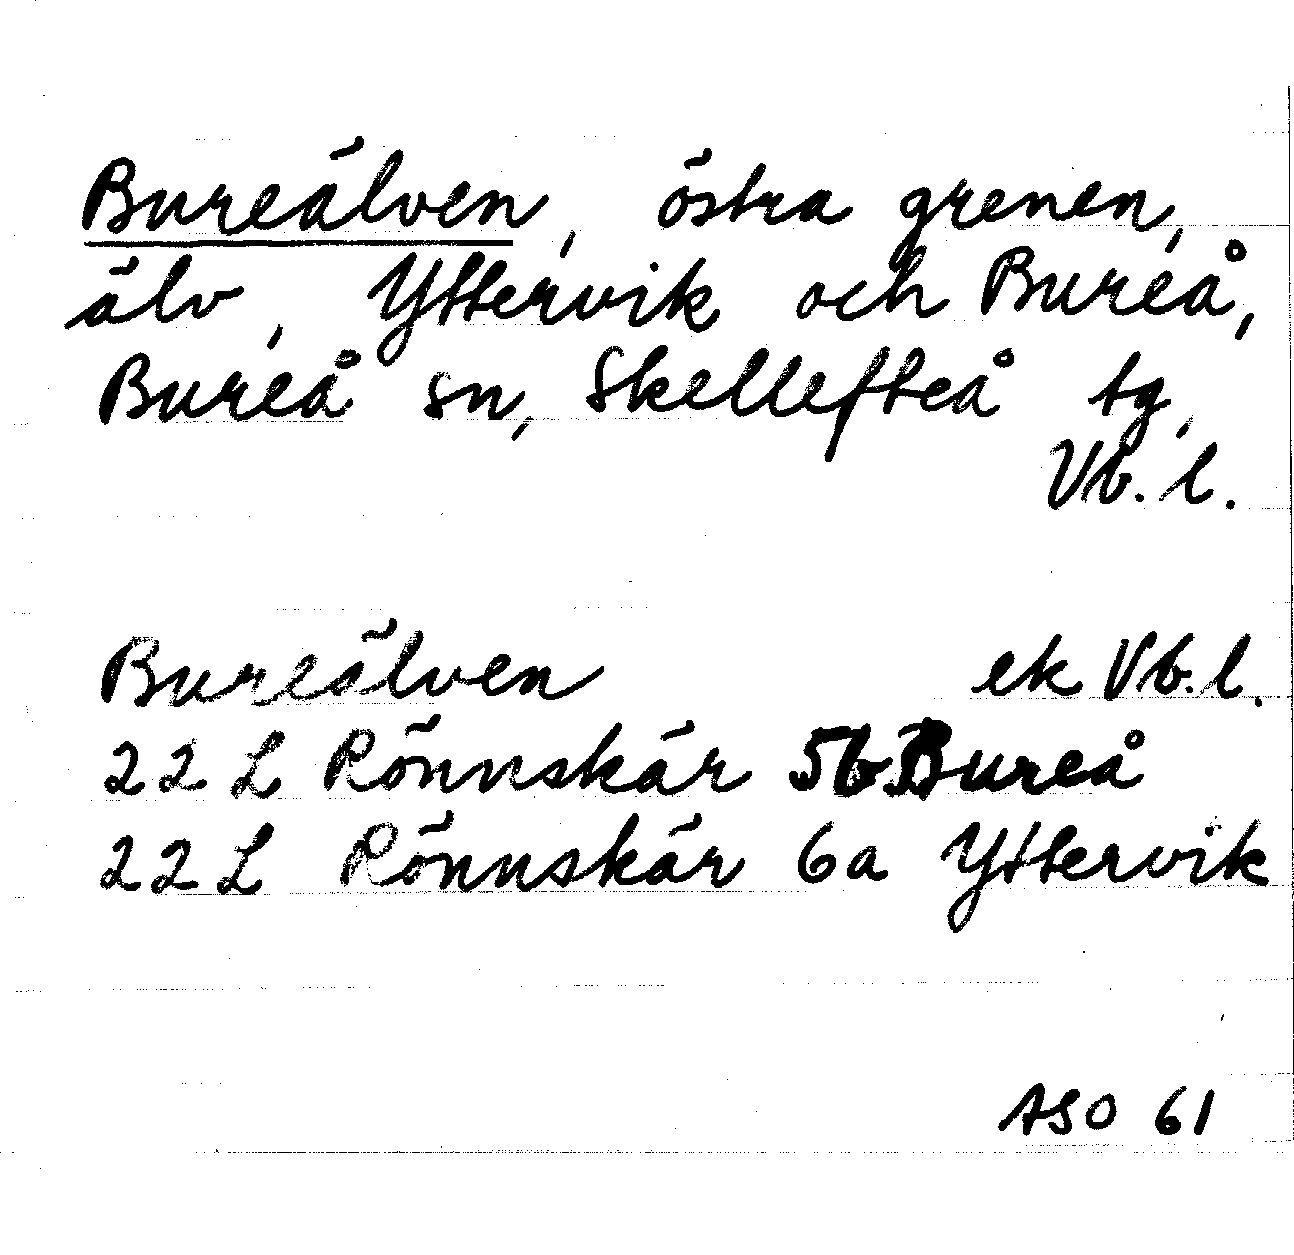 Bureälven, östra grenen,
älv, Yttervik och Bureå,
Bureå sn, Skellefteå tg,
Vb. l.
Bureälven ek Vb. l.
22 L Rönnskär 5b Bureå
22 L Rönnskär 6a Yttervik
ASO 61